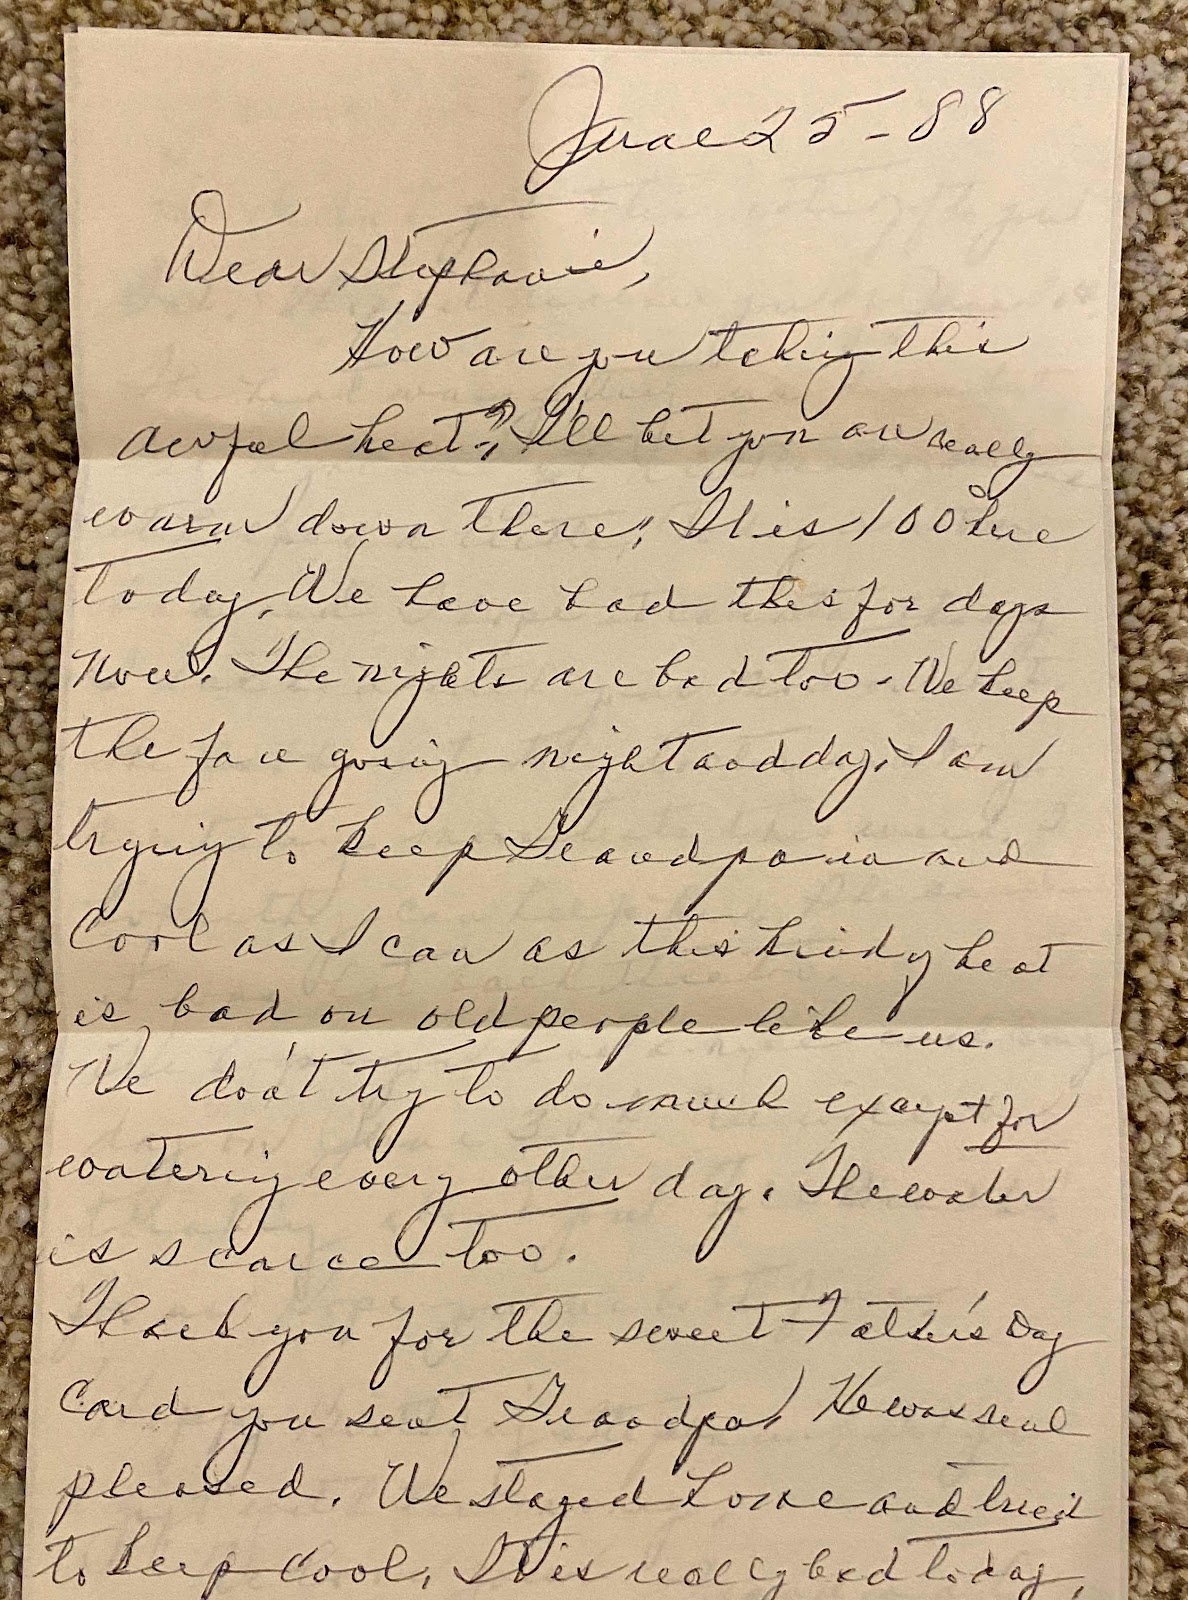 June 25-88
Dear Stephanie,
How are you taking this
awful heat? I'll bet you are really
warm down there. It is 100° here
today. We have had this for days
now. The nights are bad too. We keep
the fan going night and day. I am
trying to keep Grandpa in and
cool as I can as this kind of heat
is bad on old people like us.
We don't try to do much except for
watering every other day. The water
is scarce too.
Thank you for the sweet Father's Day
card you sent Grandpa. He was real
pleased. We stayed home and tried
to keep cool. It is really bad today.